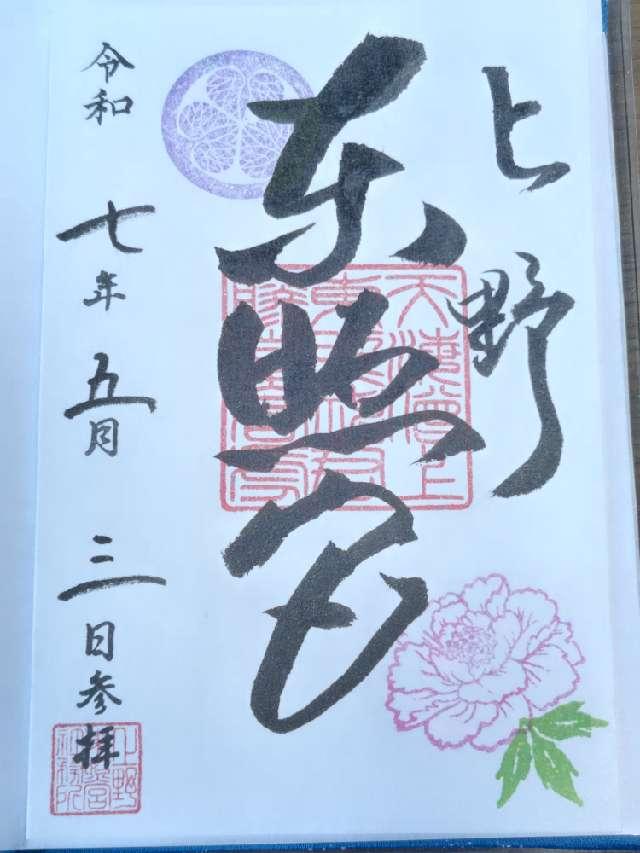 上野
東照宮
令和七年五月三日参拝